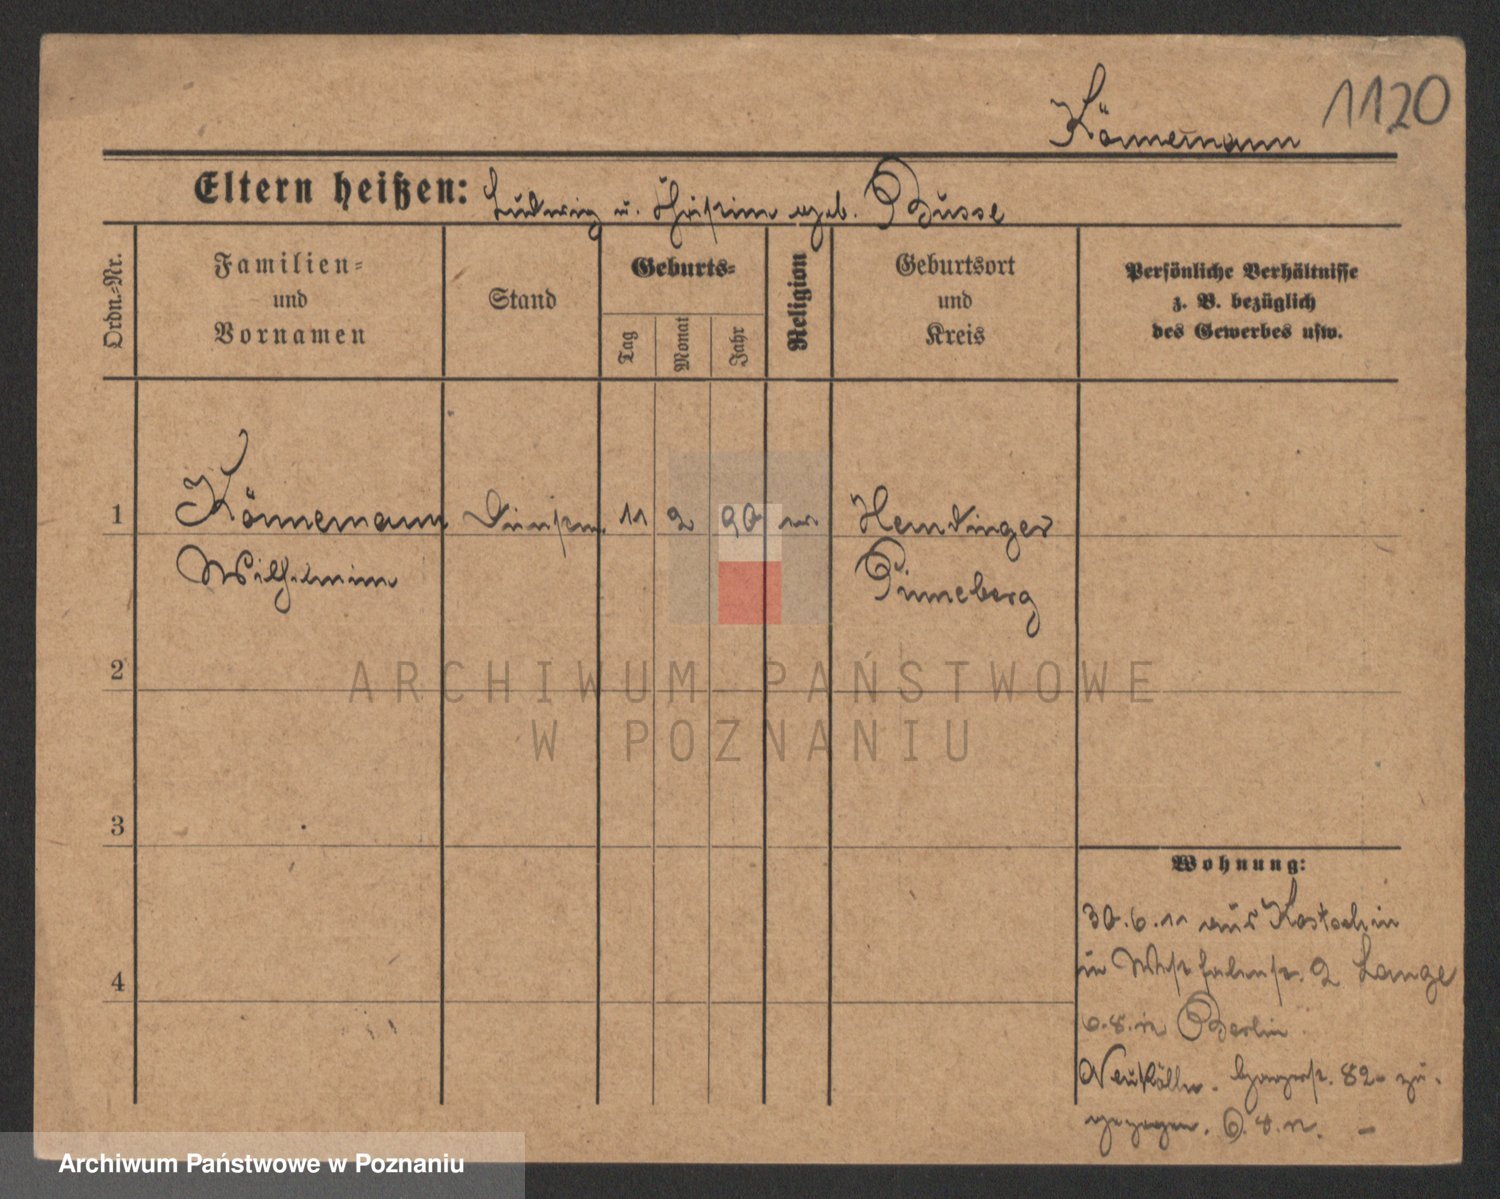 1120
Könnemann
Eltern heißen: Ludwig u. geb. Busse
Ordn.-Nr.
Familien-
und
Vornamen
Stand
Geburts-
Tag
Monat
Jahr
Religion
Geburtsort
und
Kreis
Persönliche Verhältnisse
z. B. bezüglich
des Gewerbes usw.
1 Könnemann 11 2 90
Wilhelmine Pinneberg
2
3
4
Wohnung:
30.6.11 aus Kostschin
Westfalenstr. 2 Lange
Berlin
Neukölln. 82 zu-
gezogen.
ARCHIWUM PAŃSTWOWE
W POZNANIU
Archiwum Państwowe w Poznaniu